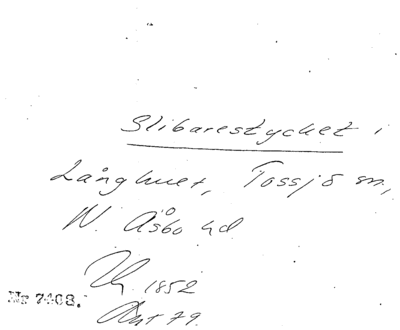 Slibarestycket i
Långhult, Tossjö sn,
N. Åsbo hd
1852
Nr 7408.
79.